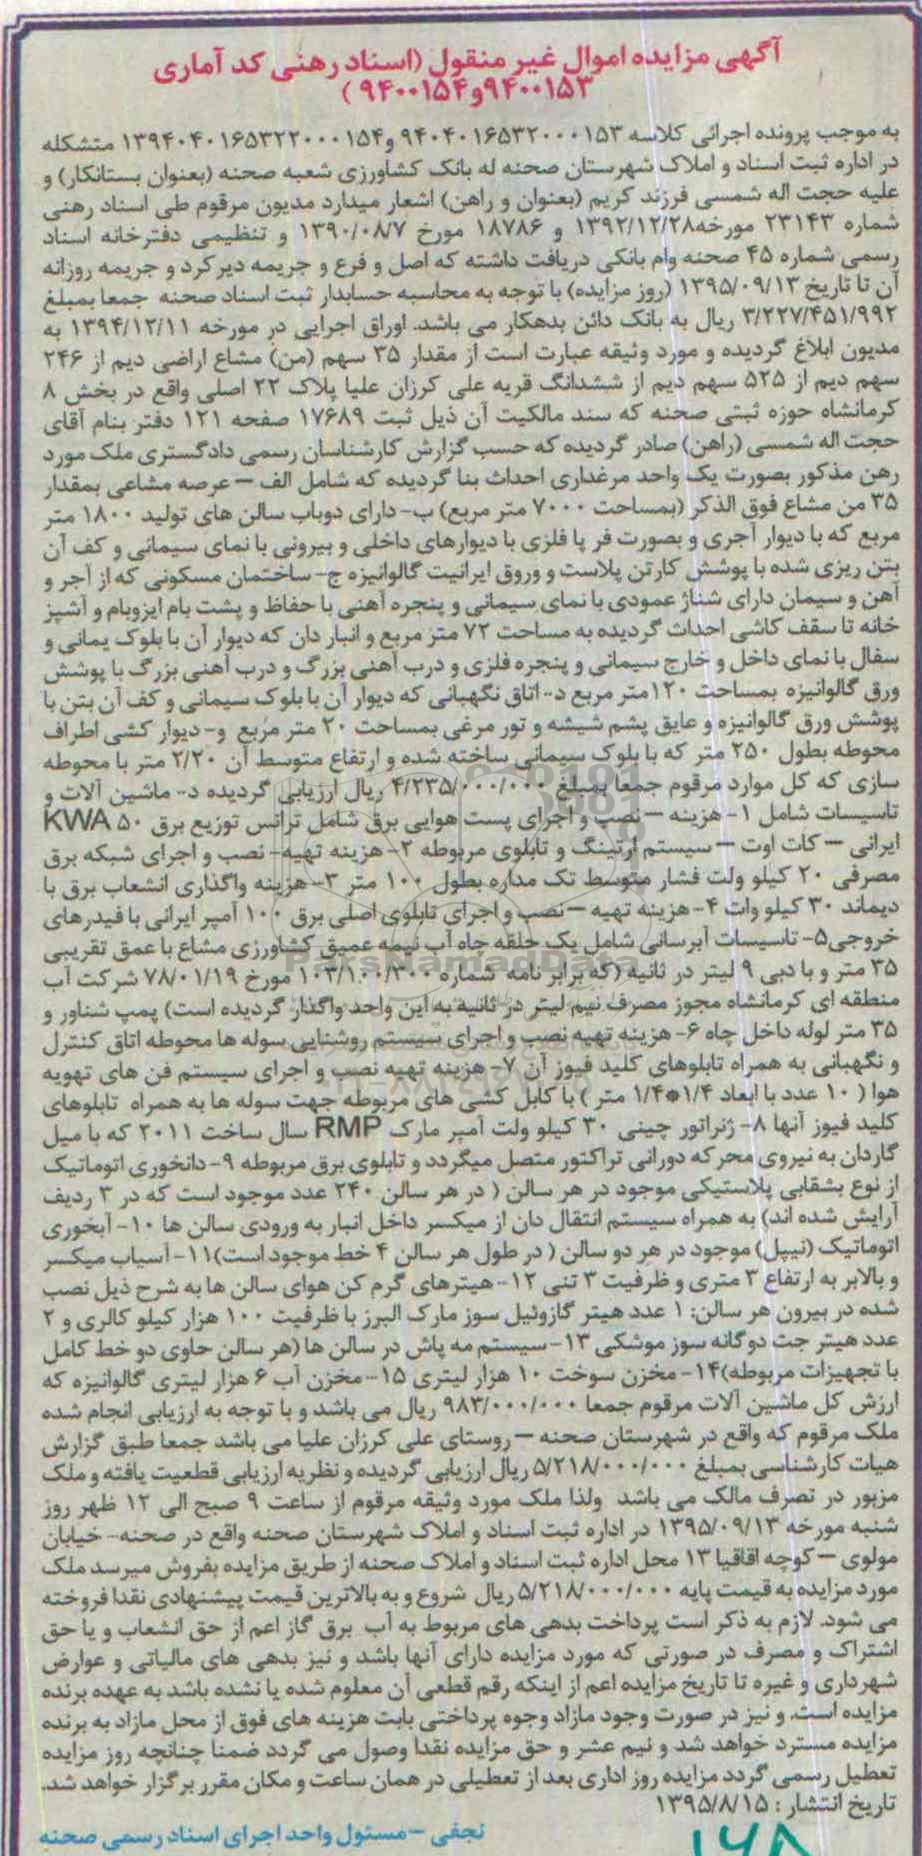 آگهی مزایده اموال غیر منقول (اسناد رهنی کد آماری
۹۴۰۰۱۵۳و۹۴۰۰۱۵۴)
به موجب پرونده اجرائی کلاسه ۹۴۰۴۰۱۶۵۳۲۰۰۰۱۵۳ و۱۳۹۴۰۴۰۱۶۵۳۲۲۰۰۰۱۵۴ متشکله
در اداره ثبت اسناد و املاک شهرستان صحنه له بانک کشاورزی شعبه صحنه (بعنوان بستانکار) و
علیه حجت اله شمسی فرزند کریم (بعنوان و راهن) اشعار میدارد مدیون مرقوم طی اسناد رهنی
شماره ۲۳۱۴۳ مورخه۱۳۹۲/۱۲/۲۸ و ۱۸۷۸۶ مورخ ۱۳۹۰/۰۸/۷ و تنظیمی دفترخانه اسناد
رسمی شماره ۴۵ صحنه وام بانکی دریافت داشته که اصل و فرع و جریمه دیرکرد و جریمه روزانه
آن تا تاریخ ۱۳۹۵/۰۹/۱۳ (روز مزایده) با توجه به محاسبه حسابدار ثبت اسناد صحنه جمعا بمبلغ
۳/۲۲۷/۴۵۱/۹۹۲ ریال به بانک دائن بدهکار می باشد. اوراق اجرایی در مورخه ۱۳۹۴/۱۲/۱۱ به
مدیون ابلاغ گردیده و مورد وثیقه عبارت است از مقدار ۳۵ سهم (من) مشاع اراضی دیم از ۲۴۶
سهم دیم از ۵۲۵ سهم دیم از ششدانگ قریه علی کرزان علیا پلاک ۲۲ اصلی واقع در بخش ۸
کرمانشاه حوزه ثبتی صحنه که سند مالکیت آن ذیل ثبت ۱۷۶۸۹ صفحه ۱۲۱ دفتر بنام آقای
حجت اله شمسی (راهن) صادر گردیده که حسب گزارش کارشناسان رسمی دادگستری ملک مورد
رهن مذکور بصورت یک واحد مرغداری احداث بنا گردیده که شامل الف – عرصه مشاعی بمقدار
۳۵ من مشاع فوق الذکر (بمساحت ۷۰۰۰ متر مربع) ب- دارای دوباب سالن های تولید ۱۸۰۰ متر
مربع که با دیوار آجری و بصورت فر پا فلزی با دیوارهای داخلی و بیرونی با نمای سیمانی و کف آن
بتن ریزی شده با پوشش کارتن پلاست و وروق ایرانیت گالوانیزه ج- ساختمان مسکونی که از آجر و
آهن و سیمان دارای شناژ عمودی با نمای سیمانی و پنجره آهنی با حفاظ و پشت بام ایزوبام و آشپز
خانه تا سقف کاشی احداث گردیده به مساحت ۷۲ متر مربع و انبار دان که دیوار آن با بلوک یمانی و
سفال با نمای داخل و خارج سیمانی و پنجره فلزی و درب آهنی بزرگ و درب آهنی بزرگ با پوشش
ورق گالوانیزه بمساحت ۱۲۰متر مربع د- اتاق نگهبانی که دیوار آن با بلوک سیمانی و کف آن بتن با
پوشش ورق گالوانیزه و عایق پشم شیشه و تور مرغی بمساحت ۲۰ متر مربع و- دیوار کشی اطراف
محوطه بطول ۲۵۰ متر که با بلوک سیمانی ساخته شده و ارتفاع متوسط آن ۲/۲۰ متر با محوطه
سازی که کل موارد مرقوم جمعا بمبلغ ۴/۲۳۵/۰۰۰/۰۰۰ ریال ارزیابی گردیده د- ماشین آلات و
تاسیسات شامل ۱- هزینه – نصب و اجرای پست هوایی برق شامل ترانس توزیع برق ۵۰ KWA
ایرانی – کات اوت – سیستم ارتینگ و تابلوی مربوطه ۲- هزینه تهیه- نصب و اجرای شبکه برق
مصرفی ۲۰ کیلو ولت فشار متوسط تک مداره بطول ۱۰۰ متر ۳- هزینه واگذاری انشعاب برق با
دیماند ۳۰ کیلو وات ۴- هزینه تهیه – نصب و اجرای تابلوی اصلی برق ۱۰۰ آمپر ایرانی با فیدرهای
خروجی۵- تاسیسات آبرسانی شامل یک حلقه چاه آب نیمه عمیق کشاورزی مشاع با عمق تقریبی
۳۵ متر و با دبی ۹ لیتر در ثانیه (که برابر نامه شماره ۱۰۳/۱۰۰/۳۰۰ مورخ ۷۸/۰۱/۱۹ شرکت آب
منطقه ای کرمانشاه مجوز مصرف نیم لیتر در ثانیه به این واحد واگذار گردیده است) پمپ شناور و
۳۵ متر لوله داخل چاه ۶- هزینه تهیه نصب و اجرای سیستم روشنایی سوله ها محوطه اتاق کنترل
و نگهبانی به همراه تابلوهای کلید فیوز آن ۷- هزینه تهیه نصب و اجرای سیستم فن های تهویه
هوا ( ۱۰ عدد با ابعاد ۱/۴*۱/۴ متر ) با کابل کشی های مربوطه جهت سوله ها به همراه تابلوهای
کلید فیوز آنها ۸- ژنراتور چینی ۳۰ کیلو ولت آمپر مارک RMP سال ساخت ۲۰۱۱ که با میل
گاردان به نیروی محرکه دورانی تراکتور متصل میگردد و تابلوی برق مربوطه ۹- دانخوری اتوماتیک
از نوع بشقابی پلاستیکی موجود در هر سالن ( در هر سالن ۲۴۰ عدد موجود است که در ۳ ردیف
آرایش شده اند) به همراه سیستم انتقال دان از میکسر داخل انبار به ورودی سالن ها ۱۰- آبخوری
اتوماتیک (نیپل) موجود در هر دو سالن ( در طول هر سالن ۴ خط موجود است)۱۱- آسیاب میکسر
و بالابر به ارتفاع ۳ متری و ظرفیت ۳ تنی ۱۲- هیترهای گرم کن هوای سالن ها به شرح ذیل نصب
شده در بیرون هر سالن: ۱ عدد هیتر گازوئیل سوز مارک البرز با ظرفیت ۱۰۰ هزار کیلو کالری و ۲
عدد هیتر جت دوگانه سوز موشکی ۱۳- سیستم مه پاش در سالن ها (هر سالن حاوی دو خط کامل
با تجهیزات مربوطه)۱۴- مخزن سوخت ۱۰ هزار لیتری ۱۵- مخزن آب ۶ هزار لیتری گالوانیزه که
ارزش کل ماشین آلات مرقوم جمعا ۹۸۳/۰۰۰/۰۰۰ ریال می باشد و با توجه به ارزیابی انجام شده
ملک مرقوم که واقع در شهرستان صحنه – روستای علی کرزان علیا می باشد جمعا طبق گزارش
هیات کارشناسی بمبلغ ۵/۲۱۸/۰۰۰/۰۰۰ ریال ارزیابی گردیده و نظریه ارزیابی قطعیت یافته و ملک
مزبور در تصرف مالک می باشد ولذا ملک مورد وثیقه مرقوم از ساعت ۹ صبح الی ۱۲ ظهر روز
شنبه مورخه ۱۳۹۵/۰۹/۱۳ در اداره ثبت اسناد و املاک شهرستان صحنه واقع در صحنه- خیابان
مولوی – کوچه اقاقیا ۱۳ محل اداره ثبت اسناد و املاک صحنه از طریق مزایده بفروش میرسد ملک
مورد مزایده به قیمت پایه ۵/۲۱۸/۰۰۰/۰۰۰ ریال شروع و به بالاترین قیمت پیشنهادی نقدا فروخته
می شود. لازم به ذکر است پرداخت بدهی های مربوط به آب برق گاز اعم از حق انشعاب و یا حق
اشتراک و مصرف در صورتی که مورد مزایده دارای آنها باشد و نیز بدهی های مالیاتی و عوارض
شهرداری و غیره تا تاریخ مزایده اعم از اینکه رقم قطعی آن معلوم شده یا نشده باشد به عهده برنده
مزایده است. و نیز در صورت وجود مازاد وجوه پرداختی بابت هزینه های فوق از محل مازاد به برنده
مزایده مسترد خواهد شد و نیم عشر و حق مزایده نقدا وصول می گردد ضمنا چنانچه روز مزایده
تعطیل رسمی گردد مزایده روز اداری بعد از تعطیلی در همان ساعت و مکان مقرر برگزار خواهد شد.
تاریخ انتشار : ۱۳۹۵/۸/۱۵
نجفی – مسئول واحد اجرای اسناد رسمی صحنه
۱۶۸
ParsNamadData